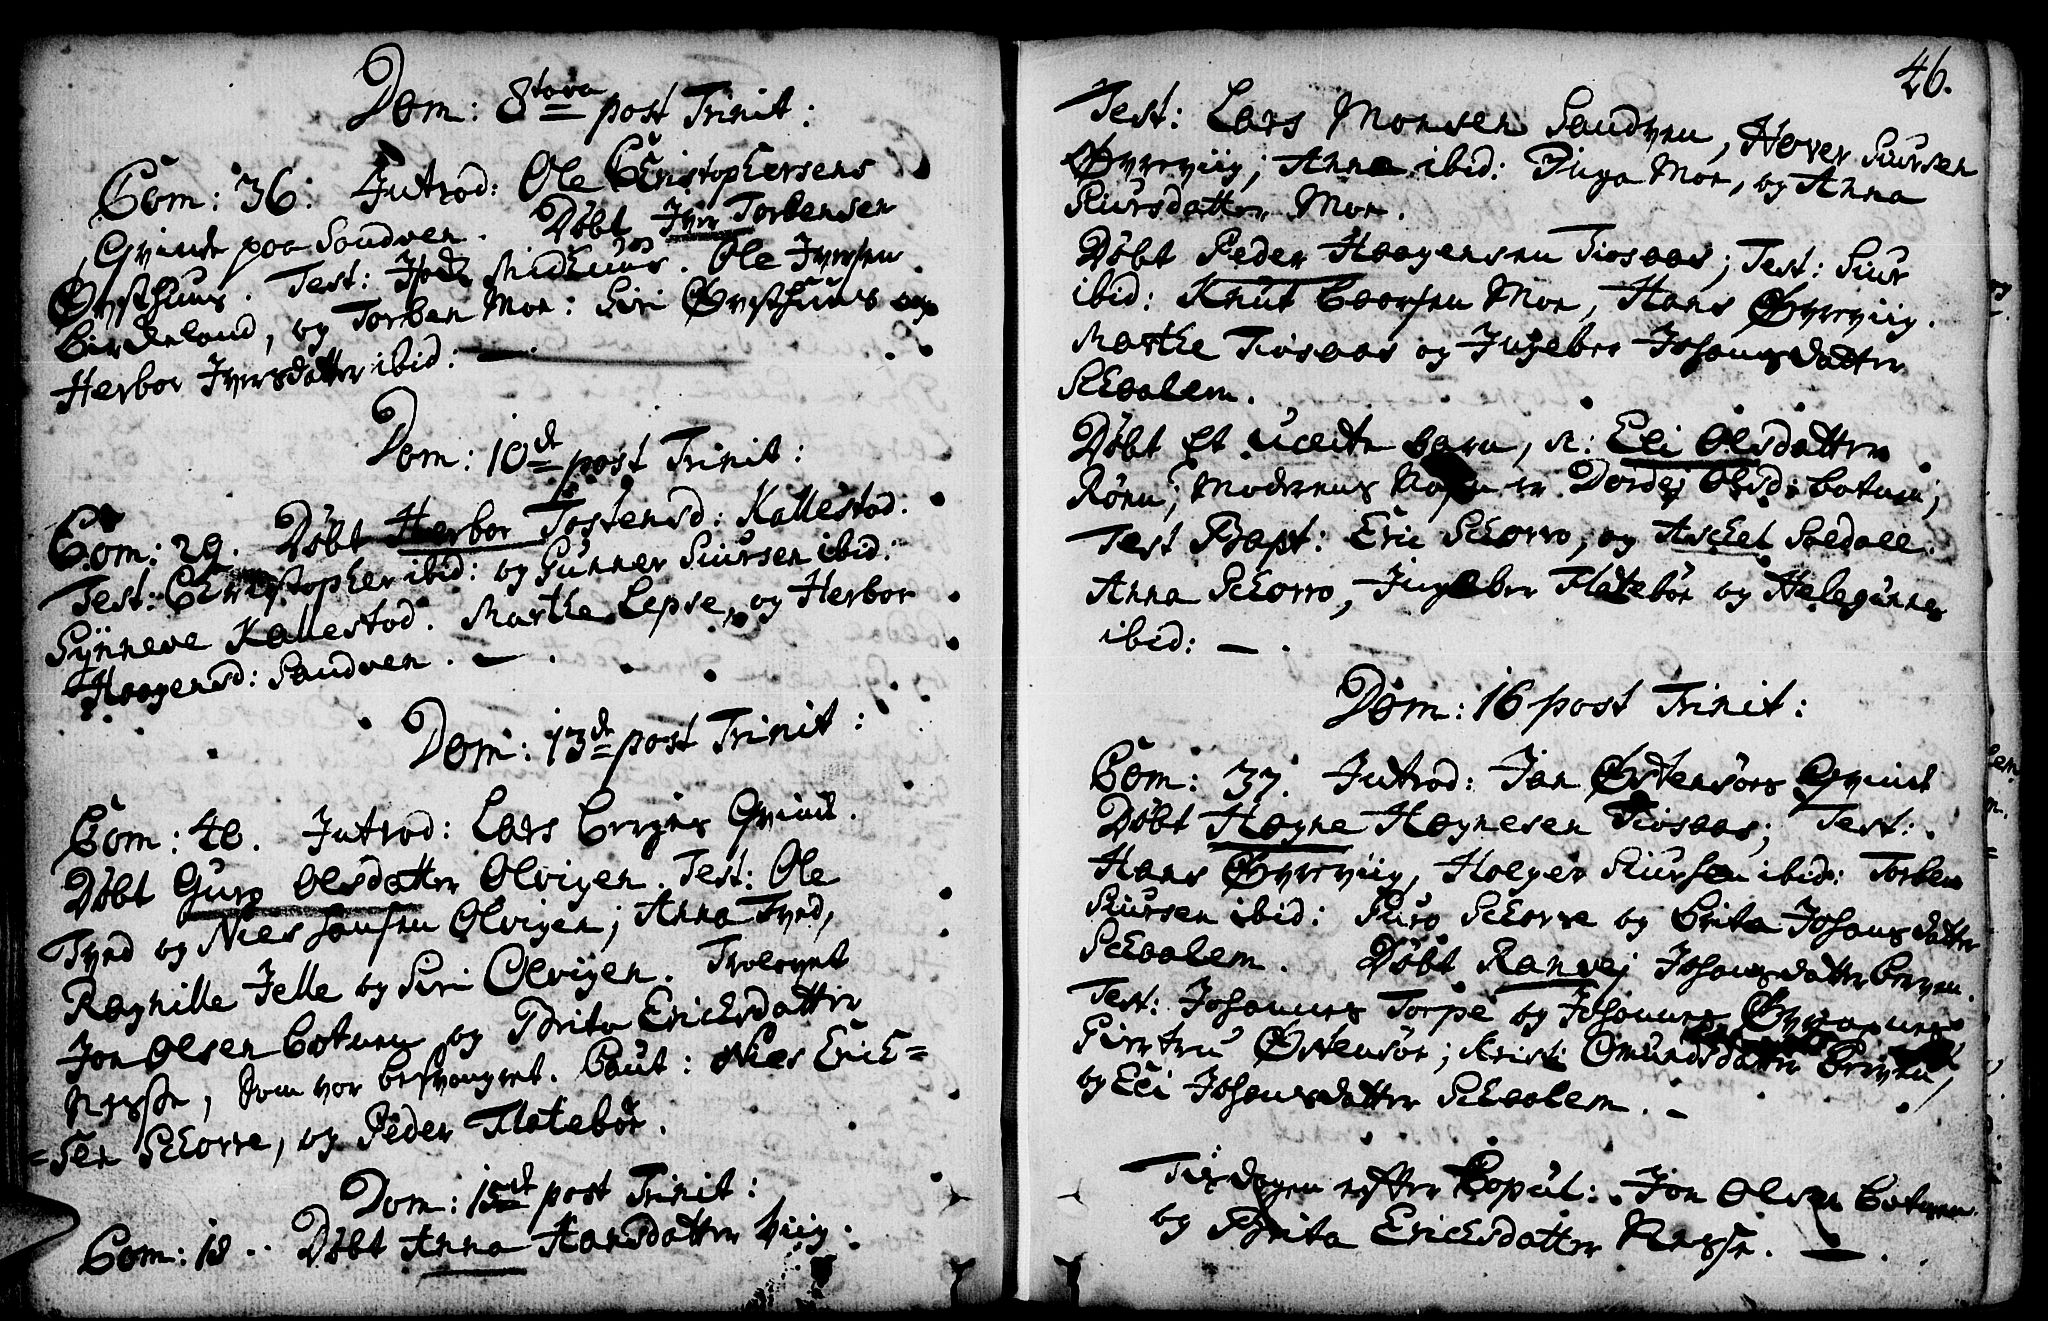 Dom: 8tava post Trinit:
Com: 36: Introd: Ole Christophersens
Qvinde paa Sandven. Døbt Iver Torbensen
Øvsthuus. Test: Midhuus. Ole Iversen
Birkeland, og Torben Moe: Siri Øvsthuus og
Herbor Iversdatter ibid: —.
Dom: 10de post Trinit:
Com: 29. Døbt Herbor Tostensd: Kallestad:
Test: Christopher ibid: og Gunner Siursen ibid:
Synneve Kallestad. Marthe Lepse, og Herbor
Haagensd: Sandven. — .
Dom: 13de post Trinit:
Com: 40. Introd: Lars Qvinde.
Døbt Guro Olsdatter Olvigen. Test: Ole
Tved og Niels Olvigen; Anna Tved,
Ragnille Jelle og Siri Olvigen. Trolovet
Jon Olsen Botnen og Brita Ericksdatter
Nesse, som var besvangret. Caut: Niels Erick=
=sen Schorre, og Peder Flatebøe.
Dom: 15de post Trinit:
Com: 18.. Døbt Anna Hansdatter Viig.
46.
Test: Lars Monsen Sandven, Siursen
Øvreviig; Anna ibid: Moe, og Anna
Siursdatter Moe.
Døbt Peder Haagensen Tiosaas; Test: Siur
ibid: Knut Moe, Hans Øvreviig.
Marthe Tiosaas og Ingebor Johansdatter
Schaalem.
Døbt et uecte barn, n: Eli Olsdatter
Moderens Nafn er Dordej Olsd: Botnen;
Test Bapt: Eric Schorro, og Aschel Soldall.
Anna Schorro, Ingebor Flatebøe og Helegunne
ibid: — .
Dom: 16 post Trinit:
Com: 37. Introd: Jan Østensøes Qvinde
Døbt Høgne Høgnesen Tiosaas; Test:
Hans Øvreviig, Holger Siursen ibid: Torben
Siursen ibid: Guro Schorre og Brita Johansdatter
Schaalem. Døbt Ranvej Johansdatter Berven.
Test: Johannes Torpe og Johannes
Giertru Østensøe; Kristi Omundsdatter Berven,
og Eli Johansdatter Schaalem. —
Tirsdagen efter Copul: Jon Olsen Botnen
og Brita Ericksdatter Nesse. — .